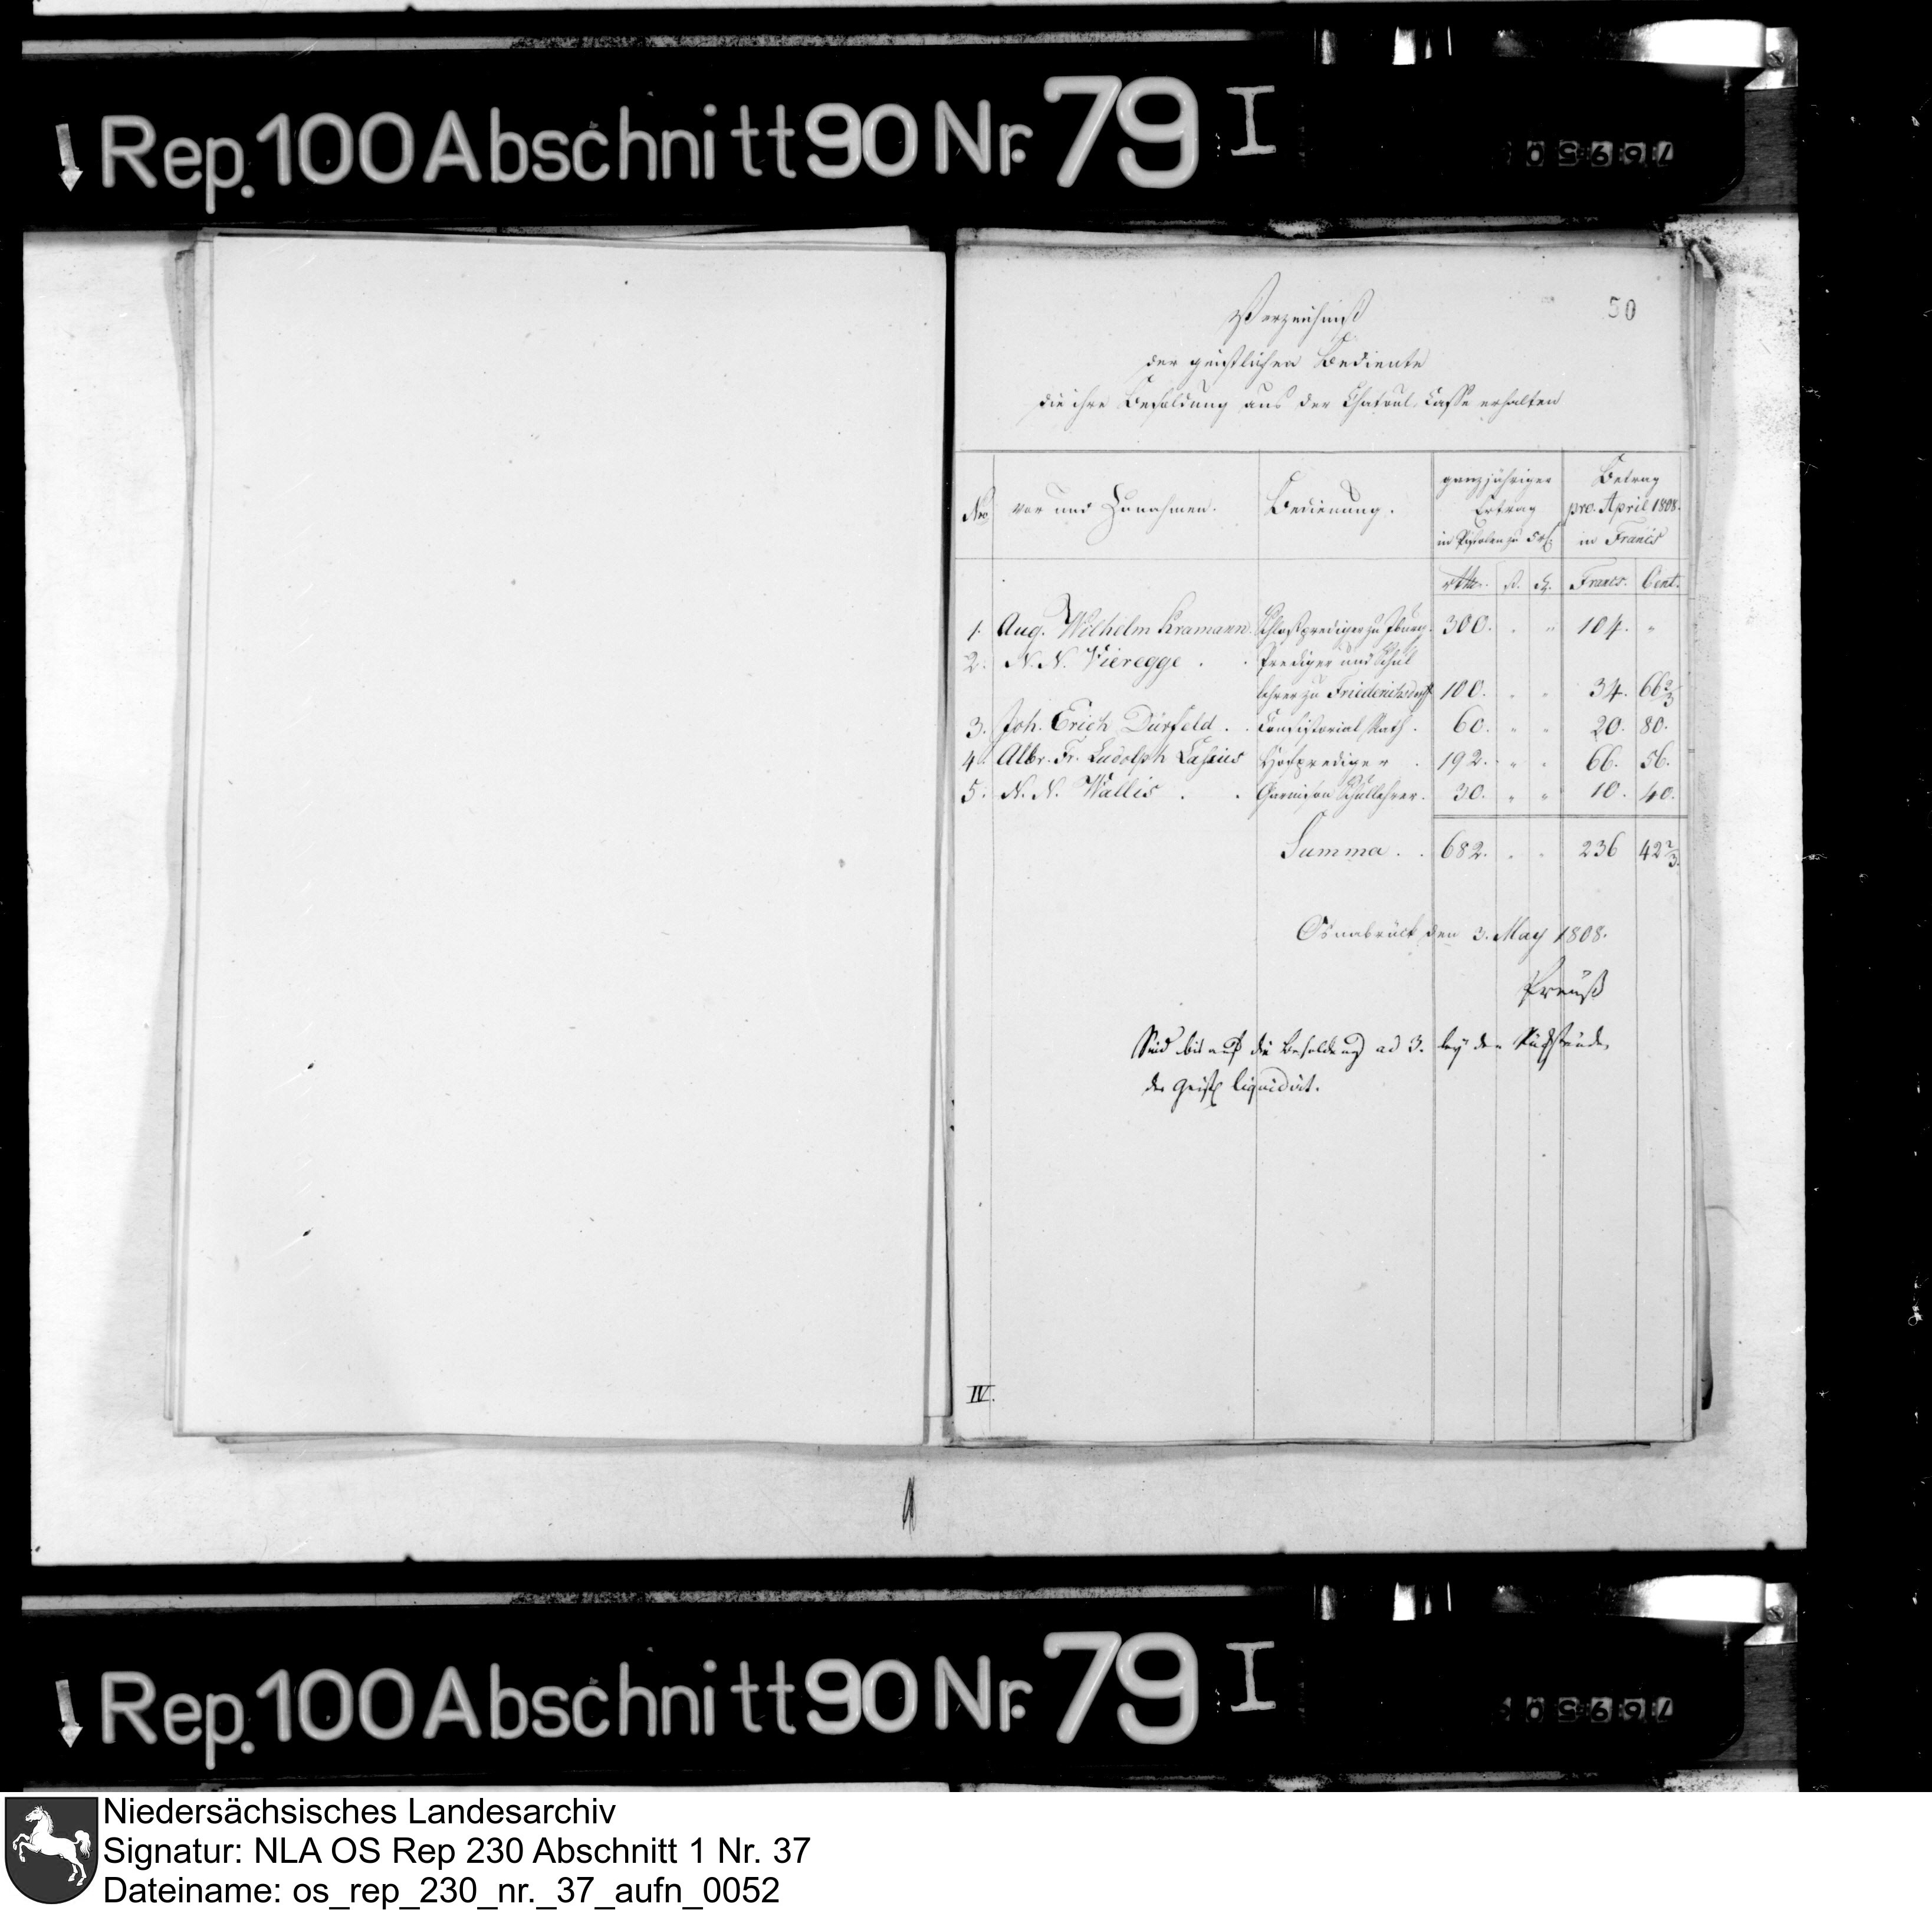 Rep. 100 Abschnitt 90 Nr. 79 I
50
Verzeichniß
der geistlichen Bediente
die ihre Besoldung aus der Chatoul-Casse erhalten
Nro Vor und Zunahmen. Bedienung. ganzjähriger Ertrag in Pistolen zu 5 rth. Betrag pro. April 1808. in Francs
rthlr. ß. d. Francs. Cent.
1. Aug. Wilhelm Kramann. Schloßprediger zu Iburg. 300. " " 104. "
2. N. N. Vieregge . . Prediger und Schul
lehrer zu Friederichsdorff 100. " " 34. 66 2/3
3. Joh. Erich Dürfeld . . Consistorial Rath . 60. " " 20. 80.
4. Albr. Fr. Ludolph Lasius Hofprediger . 192. " " 66. 56.
5. N. N. Wallis . . Garnison Schullehrer. 30. " " 10. 40.
Summa . . 682. " " 236 42 2/3.
Osnabrück den 3. May 1808.
Preuß
Sind bis auf die Besoldung ad 3. bey den Rückstände
der Geistl liquidirt.
IV.
Rep. 100 Abschnitt 90 Nr. 79 I
Niedersächsisches Landesarchiv
Signatur: NLA OS Rep 230 Abschnitt 1 Nr. 37
Dateiname: os_rep_230_nr._37_aufn_0052